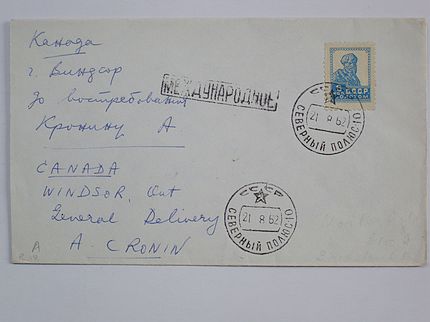 Канада
г. Виндсор
до востребования
Кронину А
МЕЖДУНАРОДНОЕ
CANADA
WINDSOR, Ont
General Delivery
A. CRONIN
СССР
СССР
21 8 62
СЕВЕРНЫЙ ПОЛЮС-10
СССР
21 8 62
СЕВЕРНЫЙ ПОЛЮС-10
A